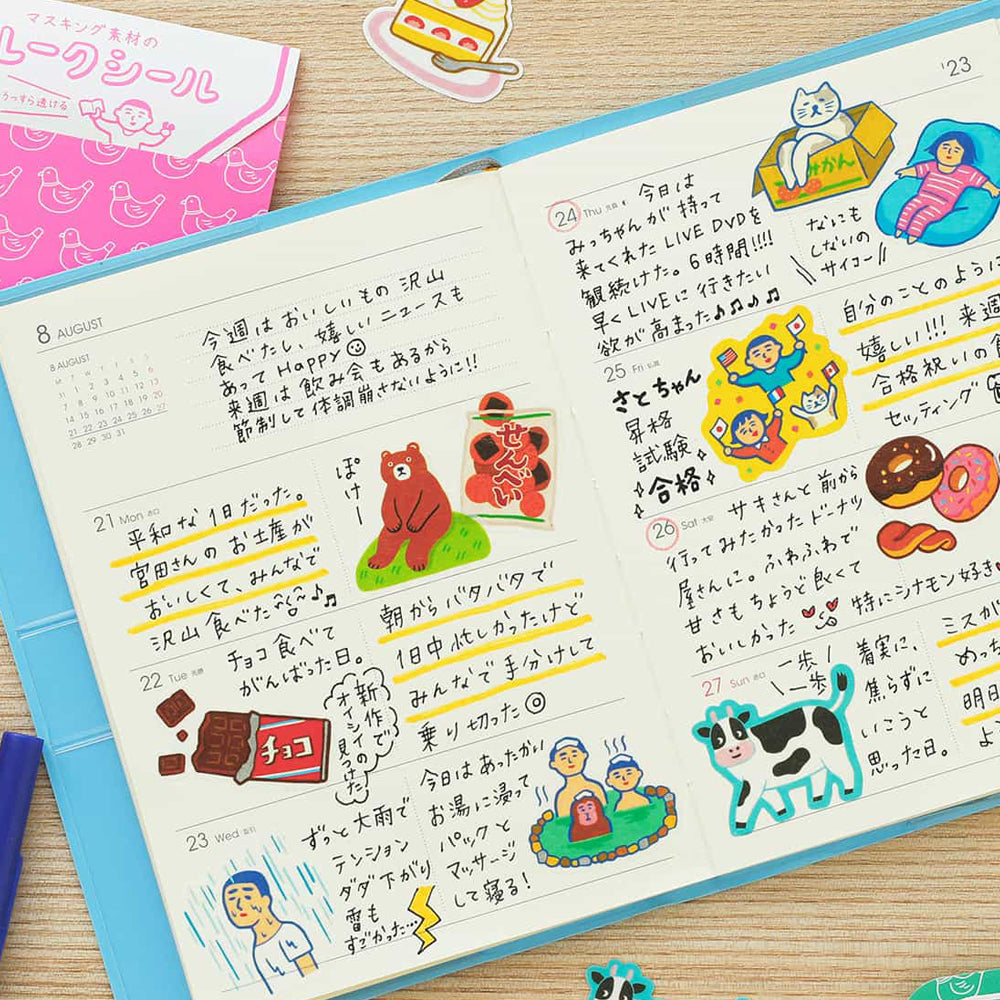 マスキング素材の
ルークシール
うっすら透ける
8 AUGUST
8 AUGUST
M T W T F S S
1 2 3 4 5 6
7 8 9 10 11 12 13
14 15 16 17 18 19 20
21 22 23 24 25 26 27
28 29 30 31
今週はおいしいもの沢山
食べたし、嬉しいニュースも
あってHappy
来週は飲み会もあるから
節制して体調崩さないように!!
21 Mon 赤口
平和な1日だった。
宮田さんのお土産が
おいしくて、みんなで
沢山食べた♪♫
ぽけー
せんべい
朝からバタバタで
1日中忙しかったけど
みんなで手分けして
乗り切った◎
22 Tue 先勝
チョコ食べて
がんばった日。
チョコ
新作で
オイシイの
見つけた
23 Wed 友引
ずっと大雨で
テンション
ダダ下がり
雷も
すごかった…
今日はあったかい
お湯に浸って
パックと
マッサージ
して寝る!
'23
24 Thu 先負
今日は
みっちゃんが持って
来てくれたLIVE DVDを
観続けた。6時間!!!!
早くLIVEに行きたい
欲が高まった♪♫♪♪
みかん
なにも
しないの
サイコー
25 Fri 仏滅
さとちゃん
昇格
試験
合格
自分のことのように
嬉しい!!! 来週
合格祝いの
セッティング
26 Sat 大安
サキさんと前から
行ってみたかったドーナツ
屋さんに。ふわふわで
甘さもちょうど良くて
おいしかった
特にシナモン好き
27 Sun 赤口
一歩
一歩
着実に、
焦らずに
いこうと
思った日。
ミスが
めっち
明日
よ